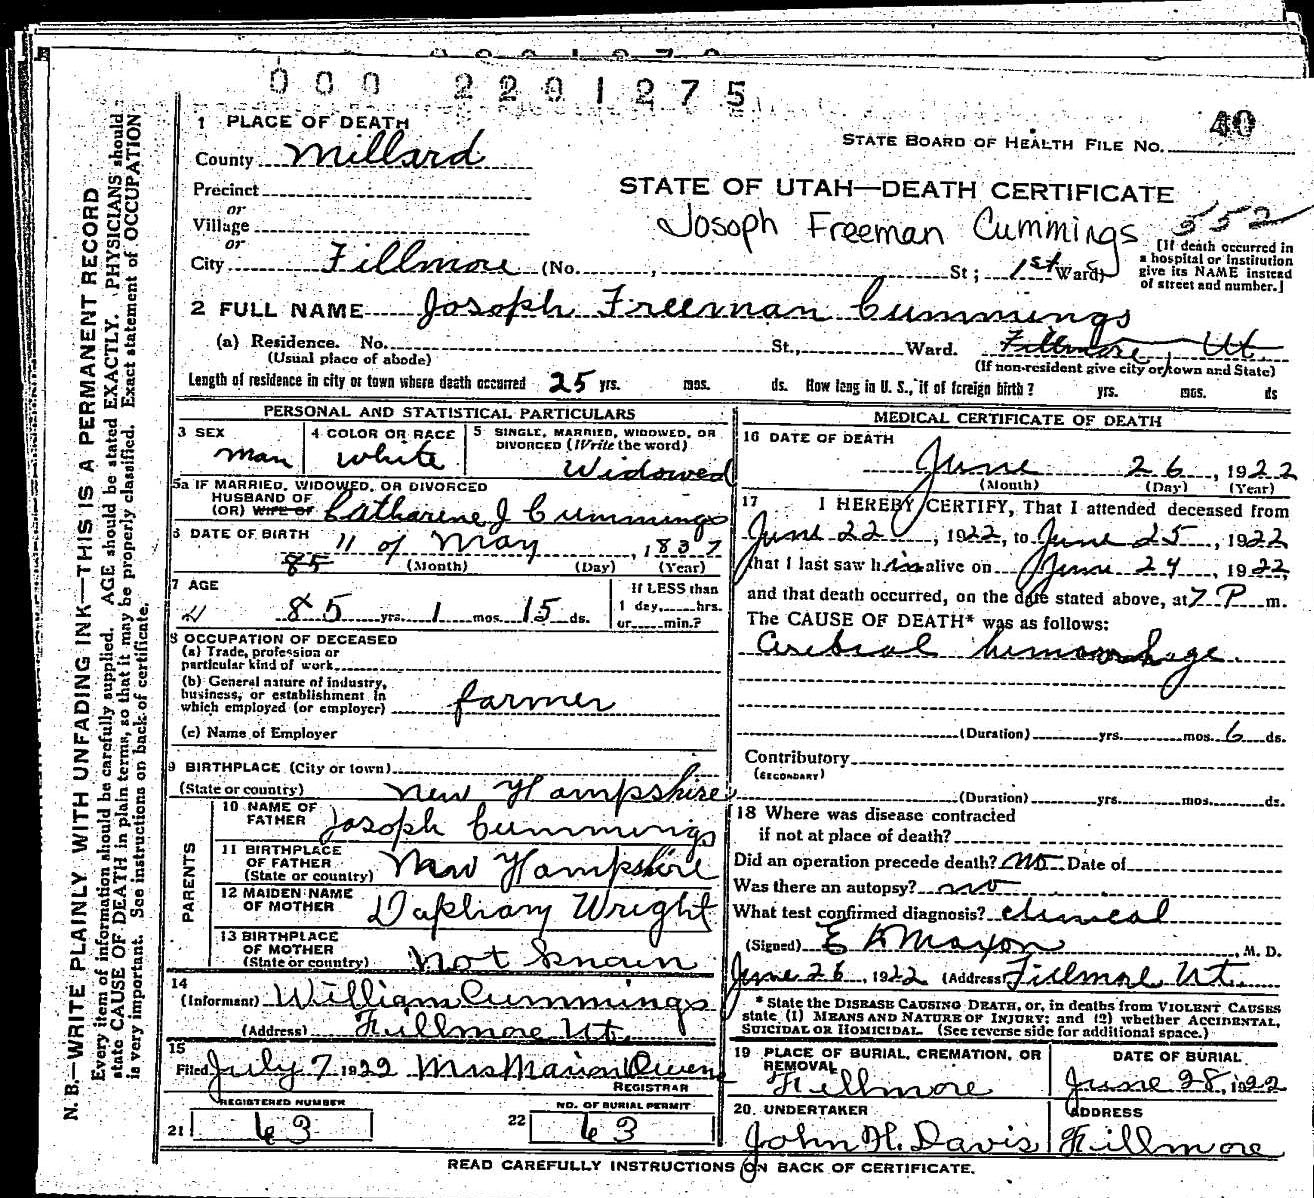 000 2201275
1 PLACE OF DEATH
40
STATE BOARD OF HEALTH FILE NO.
County Millard
Precinct
or
Village
or
City Fillmore (No. , St; 1st Ward)
STATE OF UTAH—DEATH CERTIFICATE
Josoph Freeman Cummings 352
[If death occurred in a hospital or institution give its NAME instead of street and number.]
2 FULL NAME Josoph Freeman Cummings
(a) Residence. No. St., Ward. Fillmore, Ut.
(Usual place of abode) (If non-resident give city or town and State)
Length of residence in city or town where death occurred 25 yrs. mos. ds. How long in U. S., if of foreign birth? yrs. mos. ds
PERSONAL AND STATISTICAL PARTICULARS
3 SEX man
4 COLOR OR RACE white
5 SINGLE, MARRIED, WIDOWED, OR DIVORCED (Write the word) Widowed
5a IF MARRIED, WIDOWED, OR DIVORCED
HUSBAND OF
(OR) WIFE OF Catharine J Cummings
6 DATE OF BIRTH 11 of May, 1837
85 (Month) (Day) (Year)
7 AGE
85 yrs. 1 mos. 15 ds.
If LESS than
1 day, hrs.
or min.?
8 OCCUPATION OF DECEASED
(a) Trade, profession or
particular kind of work
(b) General nature of industry,
business, or establishment in
which employed (or employer) farmer
(c) Name of Employer
9 BIRTHPLACE (City or town)
(State or country) New Hampshire
PARENTS
10 NAME OF FATHER Josoph Cummings
11 BIRTHPLACE OF FATHER (State or country) New Hampshire
12 MAIDEN NAME OF MOTHER Wright
13 BIRTHPLACE OF MOTHER (State or country) not knain
14
(Informant) William Cummings
(Address) Fillmore Ut.
15
Filed July 7 1922 Mrs Marion Owens
REGISTRAR
REGISTERED NUMBER
21 63
NO. OF BURIAL PERMIT
22 63
MEDICAL CERTIFICATE OF DEATH
16 DATE OF DEATH
June 26, 1922
(Month) (Day) (Year)
17 I HEREBY CERTIFY, That I attended deceased from
June 22, 1922, to June 25, 1922
that I last saw him alive on June 24, 1922,
and that death occurred, on the date stated above, at 7 P m.
The CAUSE OF DEATH* was as follows:
Cerebral hemorrhage
(Duration) yrs. mos. 6 ds.
Contributory
(SECONDARY)
(Duration) yrs. mos. ds.
18 Where was disease contracted
if not at place of death?
Did an operation precede death? no Date of
Was there an autopsy? no
What test confirmed diagnosis? clinical
(Signed) E K Maxon, M. D.
June 26, 1922 (Address) Fillmore Ut.
* State the DISEASE CAUSING DEATH, or, in deaths from VIOLENT CAUSES
state (1) MEANS AND NATURE OF INJURY; and (2) whether ACCIDENTAL,
SUICIDAL OR HOMICIDAL. (See reverse side for additional space.)
19 PLACE OF BURIAL, CREMATION, OR REMOVAL
Fillmore
DATE OF BURIAL
June 28, 1922
20. UNDERTAKER
John H. Davis
ADDRESS
Fillmore
READ CAREFULLY INSTRUCTIONS ON BACK OF CERTIFICATE.
N. B.—WRITE PLAINLY WITH UNFADING INK—THIS IS A PERMANENT RECORD
Every item of information should be carefully supplied. AGE should be stated EXACTLY. PHYSICIANS should
state CAUSE OF DEATH in plain terms, so that it may be properly classified. Exact statement of OCCUPATION
is very important. See instructions on back of certificate.